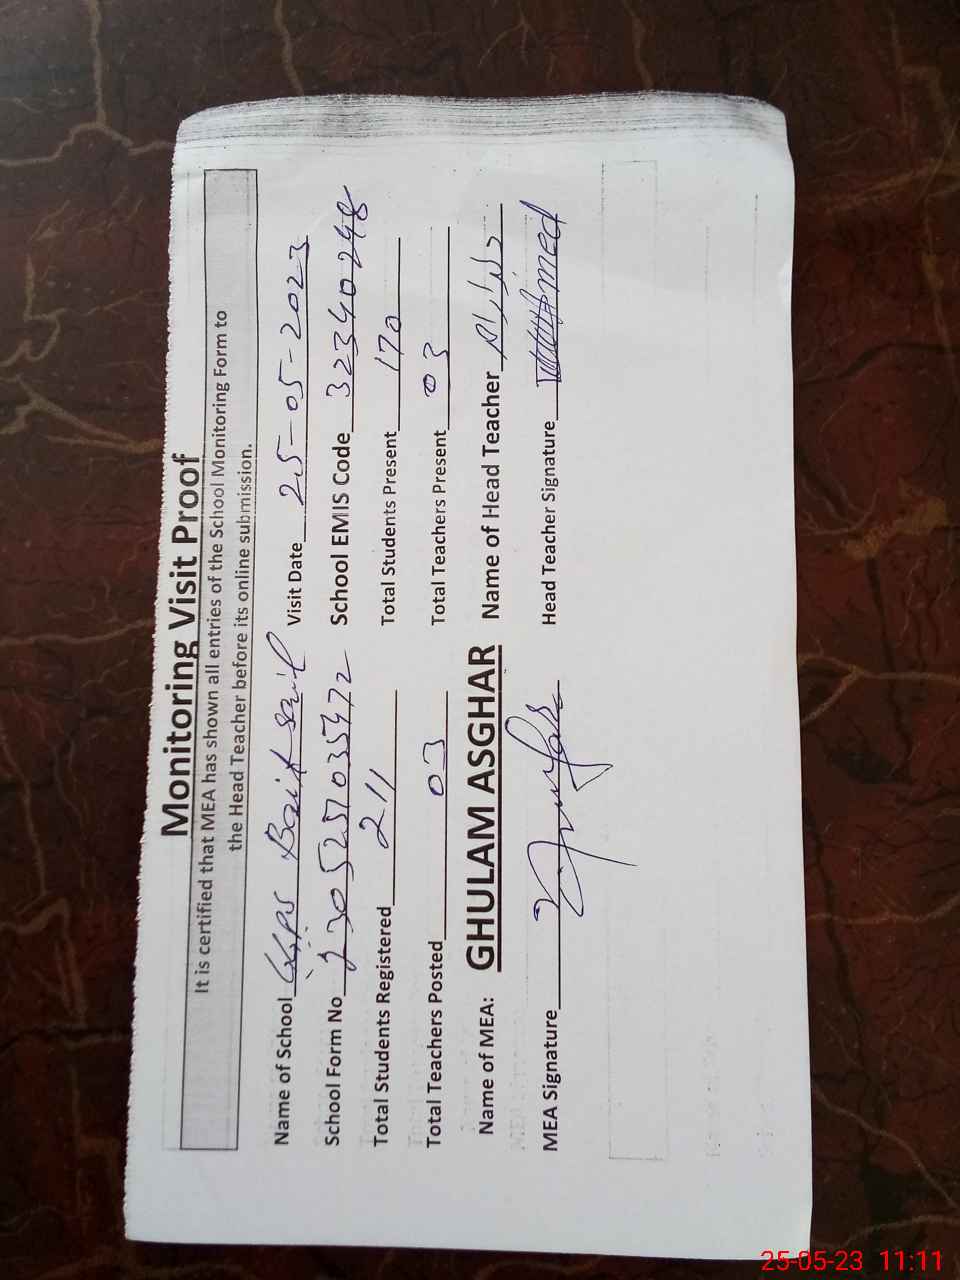 Monitoring Visit Proof
It is certified that MEA has shown all entries of the School Monitoring Form to
the Head Teacher before its online submission.
Name of School GGPS Bait Sail Visit Date 25-05-2023
School Form No 2305251035472 School EMIS Code 32340248
Total Students Registered 211 Total Students Present 170
Total Teachers Posted 03 Total Teachers Present 03
Name of MEA: GHULAM ASGHAR Name of Head Teacher
MEA Signature Head Teacher Signature
25-05-23 11:11